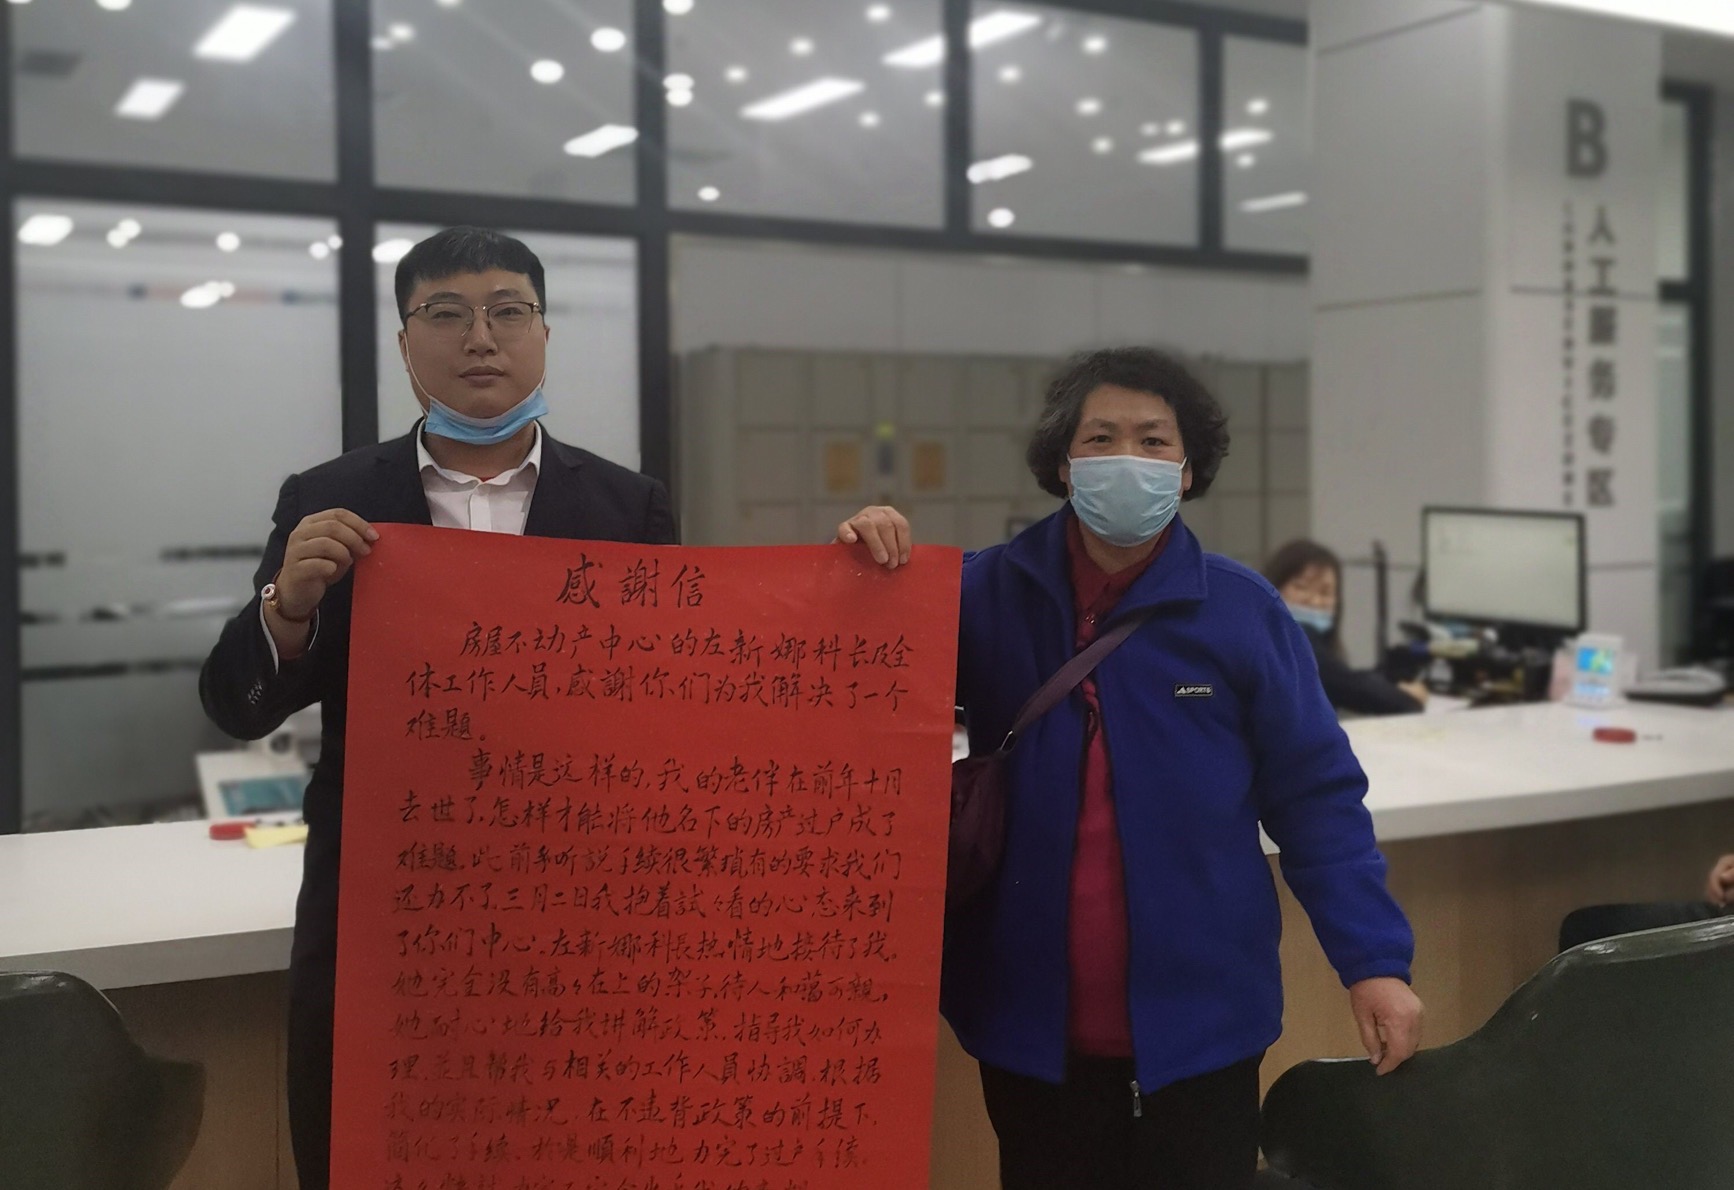 感謝信
房屋不动产中心的左新娜科长及全
体工作人員,感謝你们为我解决了一个
难題。
事情是这样的,我的老伴在前年十月
去世了,怎样才能将他名下的房产过户成了
难題。此前我听説手续很繁瑣有的要求我们
还办不了。三月二日我抱着試々看的心态来到
了你们中心。左新娜科長热情地接待了我。
她完全没有高々在上的架子,待人和蔼可親,
她耐心地给我讲解政策,指导我如何办
理,並且帮我与相关的工作人員协調,根据
我的实际情况,在不违背政策的前提下,
简化了手续,於是順利地办完了过户手续。
B 人工服务专区
SPORTS